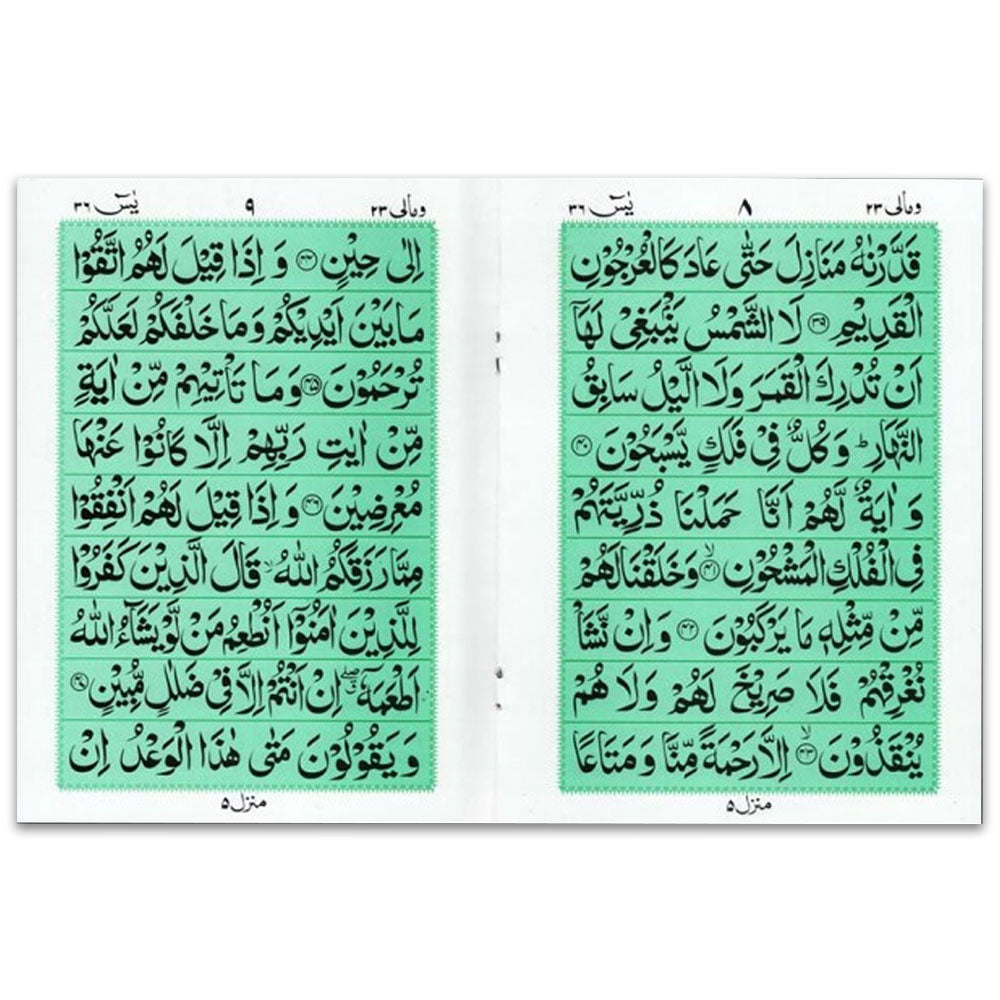 ومالی ۲۳ ۸ یٰسٓ ۳۶
قَدَّرْنٰهُ مَنَازِلَ حَتّٰى عَادَ كَالْعُرْجُوْنِ
الْقَدِيْمِ ۳۹ لَا الشَّمْسُ يَنْۢبَغِيْ لَهَاۤ
اَنْ تُدْرِكَ الْقَمَرَ وَلَا الَّيْلُ سَابِقُ
النَّهَارِؕ وَ كُلٌّ فِيْ فَلَكٍ يَّسْبَحُوْنَ ۴۰
وَ اٰيَةٌ لَّهُمْ اَنَّا حَمَلْنَا ذُرِّيَّتَهُمْ
فِي الْفُلْكِ الْمَشْحُوْنِ ۴۱ۙ وَخَلَقْنَا لَهُمْ
مِّنْ مِّثْلِهٖ مَا يَرْكَبُوْنَ ۴۲ وَ اِنْ نَّشَاْ
نُغْرِقْهُمْ فَلَا صَرِيْخَ لَهُمْ وَلَا هُمْ
يُنْقَذُوْنَ ۴۳ۙ اِلَّا رَحْمَةً مِّنَّا وَ مَتَاعًا
منزل ۵
ومالی ۲۳ ۹ یٰسٓ ۳۶
اِلٰى حِيْنٍ ۴۴ وَ اِذَا قِيْلَ لَهُمُ اتَّقُوْا
مَا بَيْنَ اَيْدِيْكُمْ وَ مَا خَلْفَكُمْ لَعَلَّكُمْ
تُرْحَمُوْنَ ۴۵ وَ مَا تَاْتِيْهِمْ مِّنْ اٰيَةٍ
مِّنْ اٰيٰتِ رَبِّهِمْ اِلَّا كَانُوْا عَنْهَا
مُعْرِضِيْنَ ۴۶ وَ اِذَا قِيْلَ لَهُمْ اَنْفِقُوْا
مِمَّا رَزَقَكُمُ اللّٰهُۙ قَالَ الَّذِيْنَ كَفَرُوْا
لِلَّذِيْنَ اٰمَنُوْۤا اَنُطْعِمُ مَنْ لَّوْ يَشَآءُ اللّٰهُ
اَطْعَمَهٗۤ اِنْ اَنْتُمْ اِلَّا فِيْ ضَلٰلٍ مُّبِيْنٍ ۴۷
وَ يَقُوْلُوْنَ مَتٰى هٰذَا الْوَعْدُ اِنْ
منزل ۵